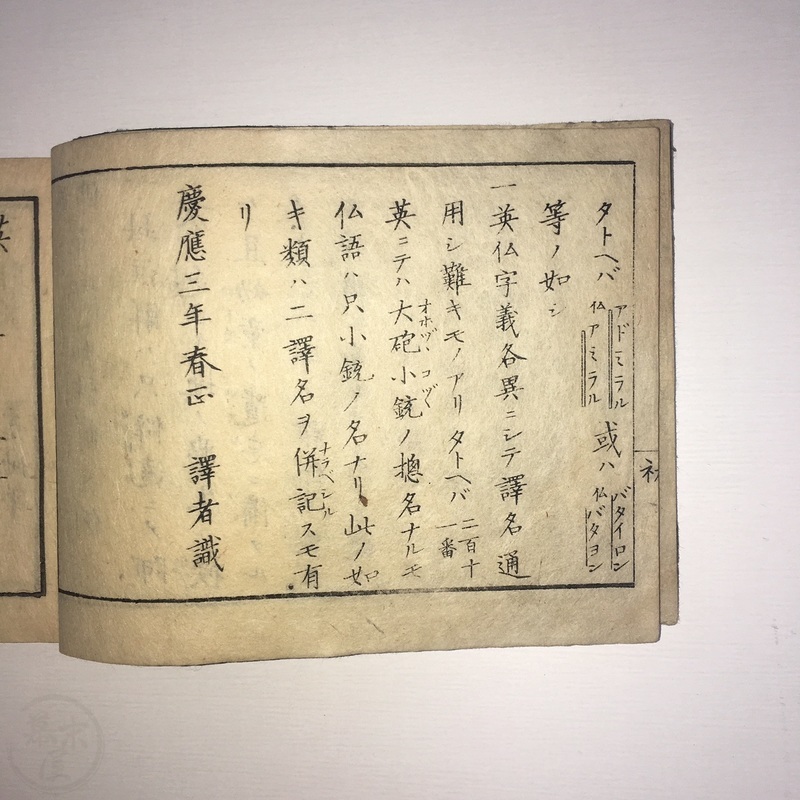 タトヘバ アドミラル 仏アミラル 或ハ バタイロン 仏バタヨン
等ノ如シ
一英仏字義各異ニシテ譯名通
用シ難キモノアリ タトヘバ 二百十一番
英ニテハ大砲小銃ノ摠名ナルモ
オホヅヽ コヅヽ
仏語ハ只小銃ノ名ナリ此ノ如
キ類ハ二譯名ヲ併記スモ有
ナラベシル
リ
慶應三年春正 譯者識
英